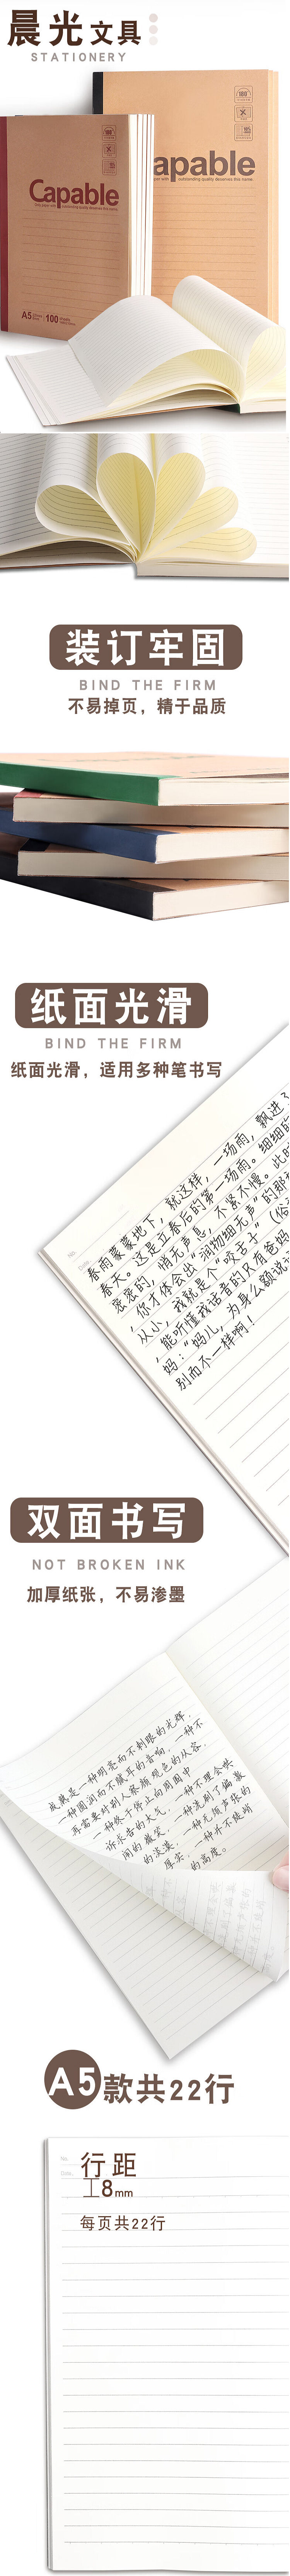 晨光文具
STATIONERY
Capable
A5
100
apable
paper with outstanding quality deserves this name.
装订牢固
BIND THE FIRM
不易掉页，精于品质
纸面光滑
BIND THE FIRM
纸面光滑，适用多种笔书写
No.
Date.
春雨蒙蒙地下，就这样，一场雨，飘进了
春天。这是立春后的第一场雨。细细的
，悄无声息，不紧不慢。此时
，你才体会出“润物细无声”的那
从小，我就是个“咬舌子”（俗
，能听懂我话音的只有爸妈
妈：“妈儿，为身么额说话
别而不一样啊！
双面书写
NOT BROKEN INK
加厚纸张，不易渗墨
成熟是一种明亮而不刺眼的光辉，
一种圆润而不腻耳的音响，一种不
再需要对别人察颜观色的从容，
一种终于停止向周围申
诉求告的大气，一种不理会哄
闹的微笑，一种洗刷了偏激
的淡漠，一种无须声张的
厚实，一种并不陡峭
的高度。
A5款共22行
No.
Date.
行距
8mm
每页共22行